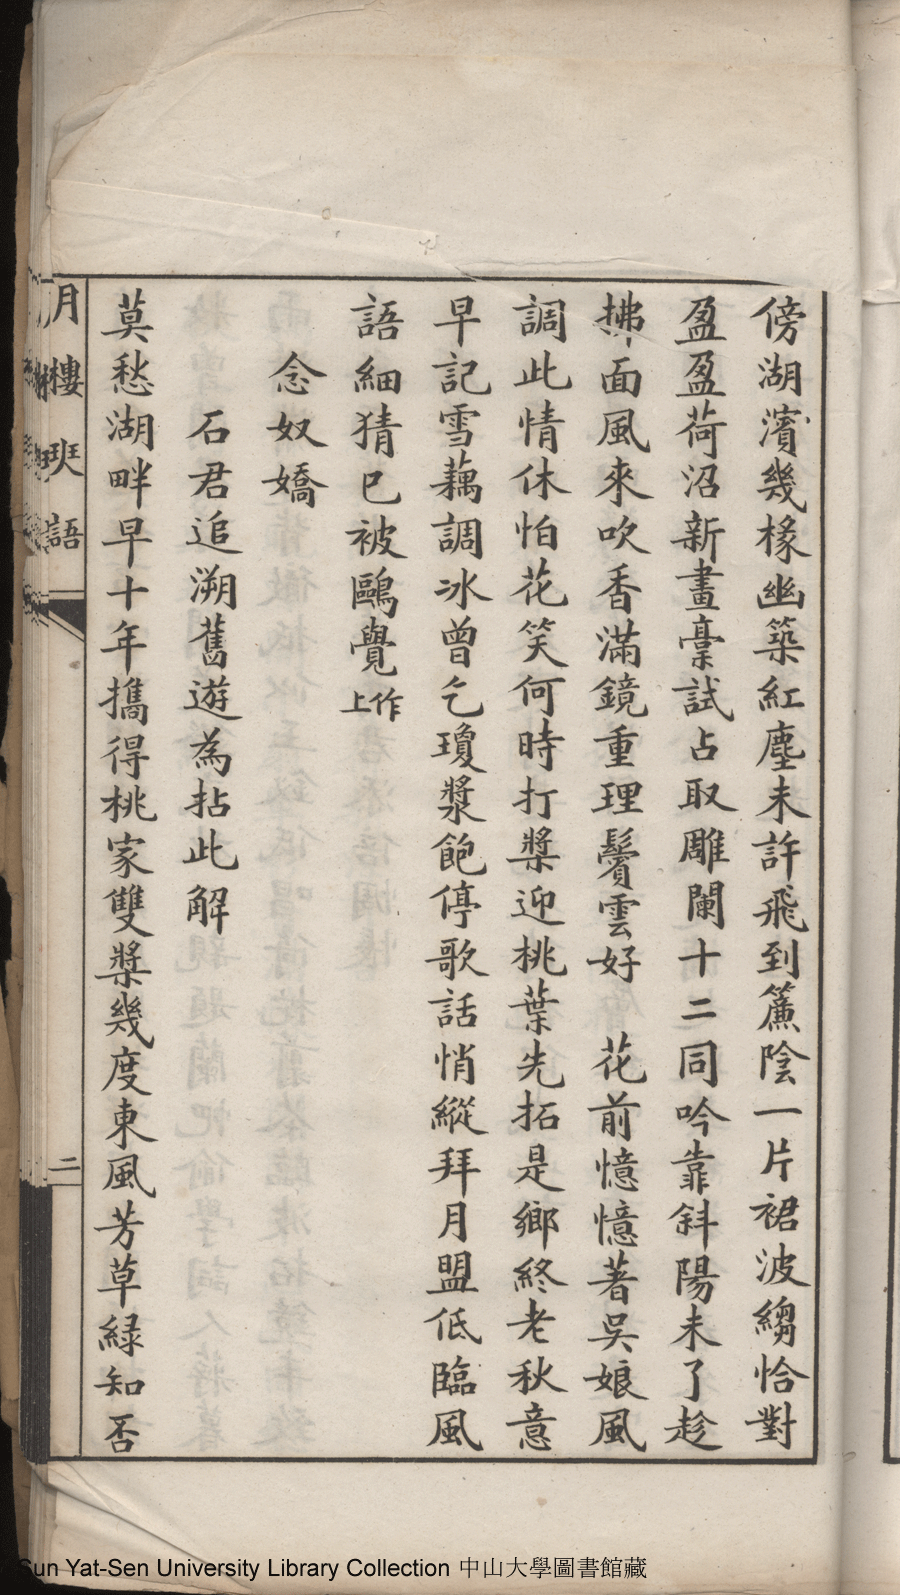 傍湖濱幾椽幽築紅塵未許飛到簾陰一片裙波縐恰對
盈盈荷沼新畫稾試占取雕闌十二同吟靠斜陽未了趁
拂面風來吹香滿鏡重理鬢雲好　花前憶憶著吳娘風
調此情休怕花笑何時打槳迎桃葉先拓是鄉終老秋意
早記雪藕調冰曾乞瓊漿飽停歌話悄縱拜月盟低臨風
語細猜已被鷗覺上作
念奴嬌
石君追溯舊遊為拈此解
莫愁湖畔早十年擕得桃家雙槳幾度東風芳草緑知否
月樓琟語
二
Sun Yat-Sen University Library Collection 中山大學圖書館藏